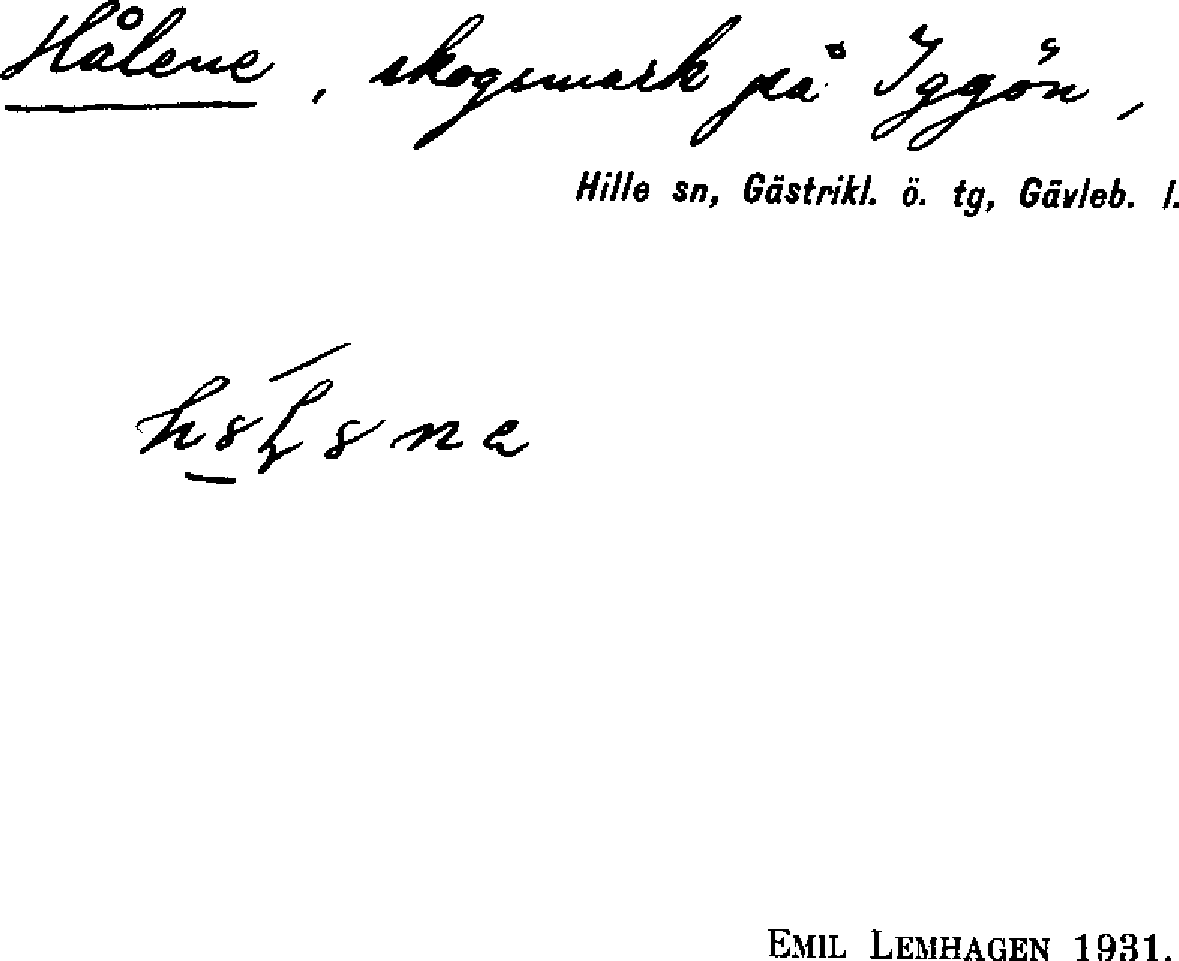 Hålene, skogsmark på Iggön,
Hille sn, Gästrikl. ö. tg, Gävleb. l.
EMIL LEMHAGEN 1931.